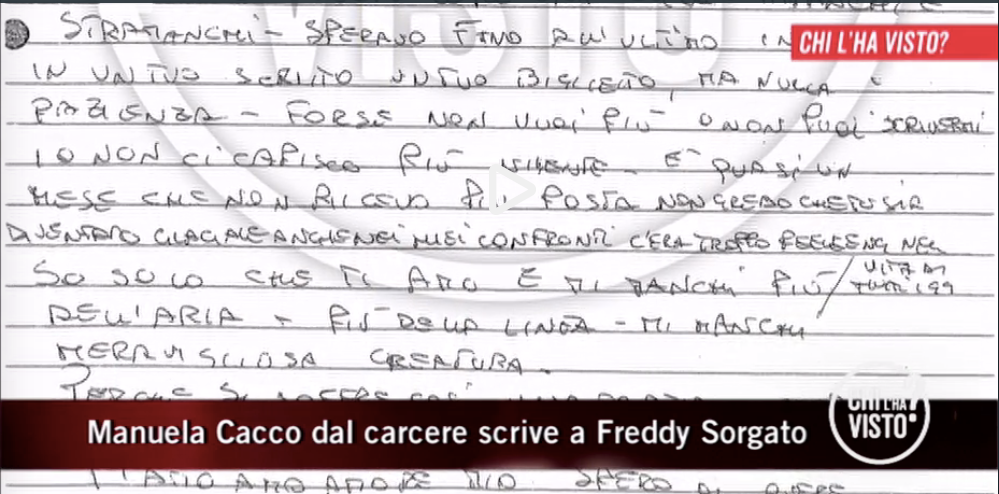 STRAMANCHI - SPERAVO FINO ALL'ULTIMO IN
CHI L'HA VISTO?
IN UN TUO SCRITTO UN TUO BIGLIETTO, MA NULLA
PAZIENZA - FORSE NON VUOI PIÙ O NON PUOI SCRIVERMI
IO NON CI CAPISCO PIÙ NIENTE - È QUASI UN
MESE CHE NON RICEVO PIÙ POSTA NON CREDO CHE TU SIA
DIVENTATO GLACIALE ANCHE NEI MIEI CONFRONTI C'ERA TROPPO FEELENG NEL
SO SOLO CHE TI AMO E MI MANCHI PIÙ
DELL'ARIA - PIÙ DELLA - MI MANCHI
MERAVIGLIOSA CREATURA.
PERCHÉ
CHI L'HA VISTO?
Manuela Cacco dal carcere scrive a Freddy Sorgato
AMO AMORE MIO SPERO DI